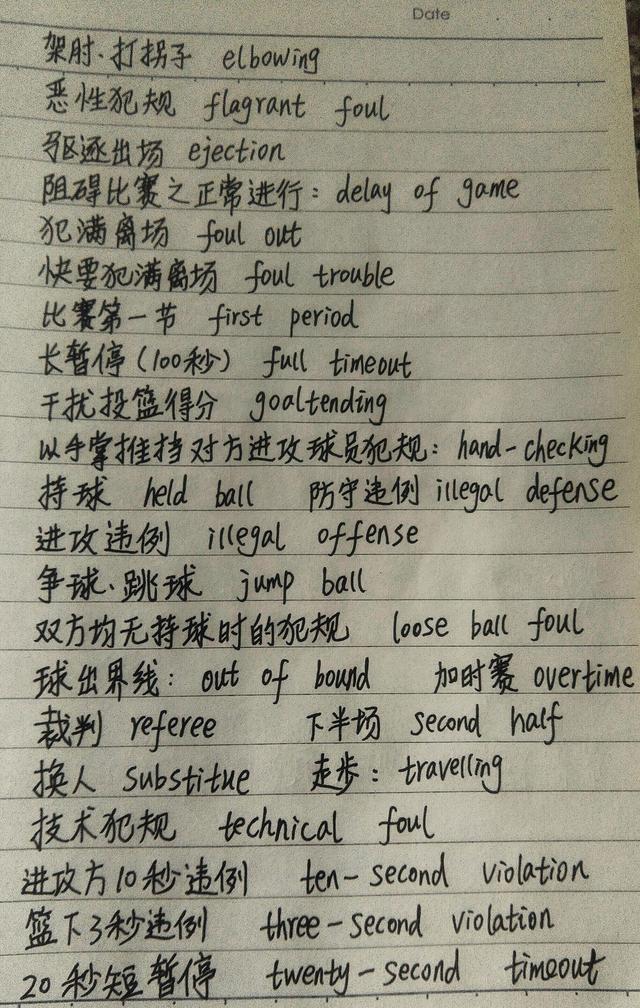 Date
架肘、打拐子 elbowing
恶性犯规 flagrant foul
驱逐出场 ejection
阻碍比赛之正常进行：delay of game
犯满离场 foul out
快要犯满离场 foul trouble
比赛第一节 first period
长暂停（100秒） full timeout
干扰投篮得分 goaltending
以手掌推挡对方进攻球员犯规：hand-checking
持球 held ball 防守违例 illegal defense
进攻违例 illegal offense
争球、跳球 jump ball
双方均无持球时的犯规 loose ball foul
球出界线：out of bound 加时赛 overtime
裁判 referee 下半场 second half
换人 substitue 走步：travelling
技术犯规 technical foul
进攻方10秒违例 ten-second violation
篮下3秒违例 three-second violation
20秒短暂停 twenty-second timeout